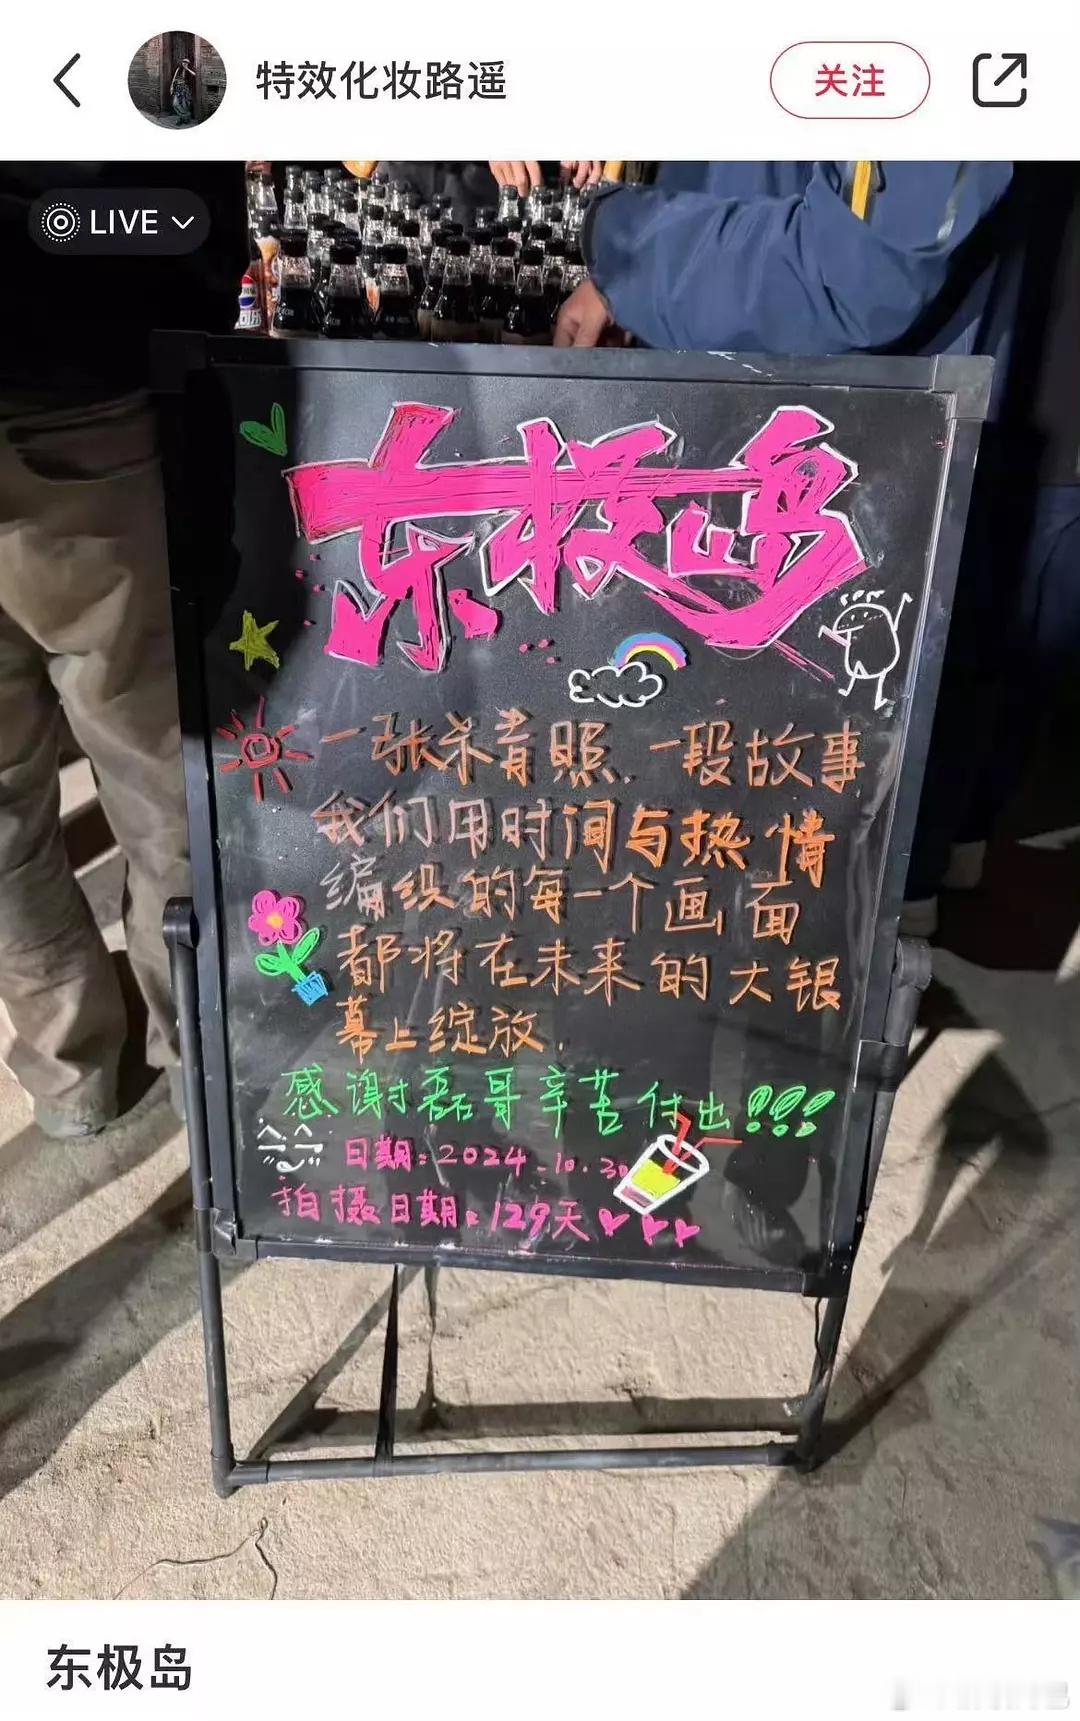 特效化妆路遥
关注
LIVE
东极岛
一张杀青照.一段故事
我们用时间与热情
编织的每一个画面
都将在未来的大银
幕上绽放.
感谢磊哥辛苦付出!!!
日期:2024.10.30
拍摄日期:129天
东极岛